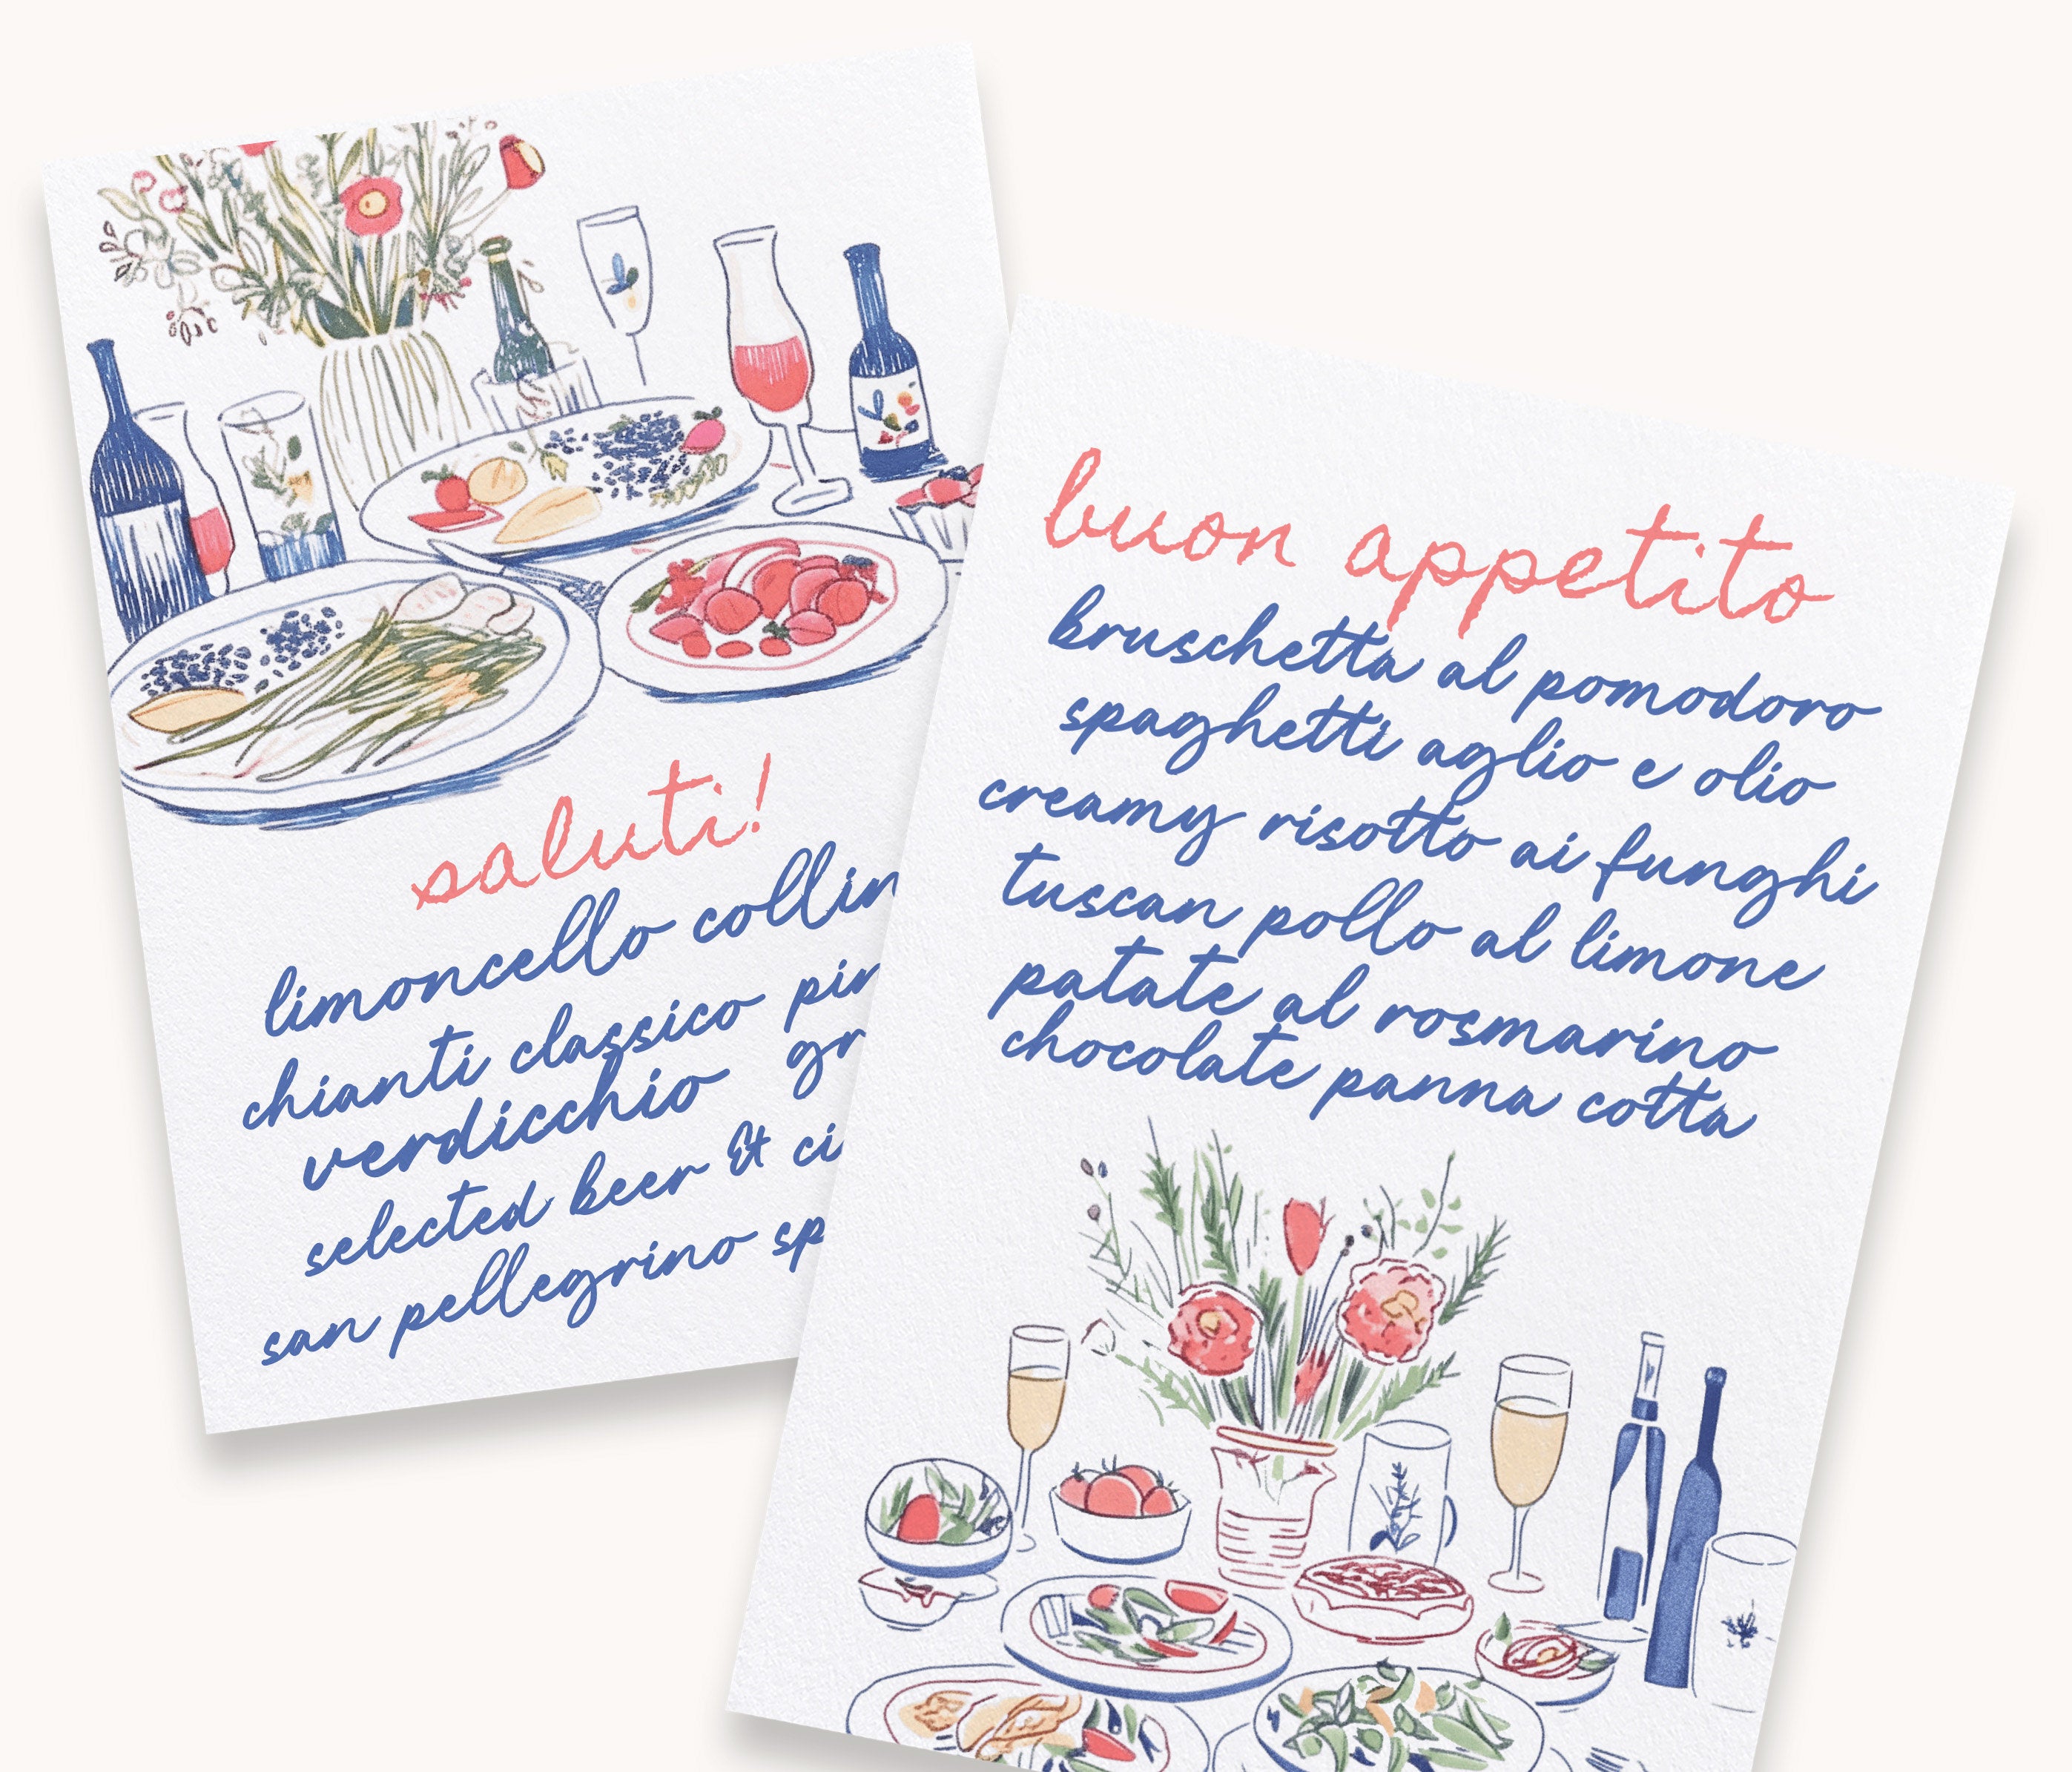 saluti!
limoncello collin
chianti classico pin
verdicchio gr
selected beer & ci
san pellegrino sp
buon appetito
bruschetta al pomodoro
spaghetti aglio e olio
creamy risotto ai funghi
tuscan pollo al limone
patate al rosmarino
chocolate panna cotta